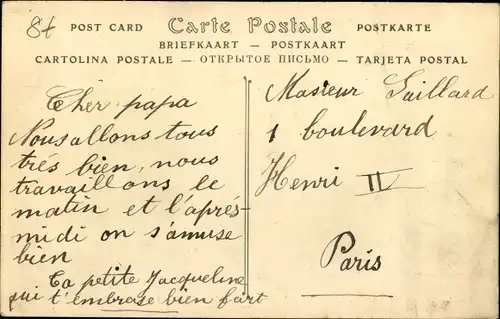 8f
POST CARD
Carte Postale
POSTKARTE
BRIEFKAART — POSTKAART
CARTOLINA POSTALE — ОТКРЫТОЕ ПИСЬМО — TARJETA POSTAL
Cher papa
Nous allons tous
trés bien, nous
travaillons le
matin et l'après-
midi on s'amuse
bien
Ta petite Jacqueline
qui t'embrase bien fort
Masieur Saillard
1 boulevard
Henri II
Paris